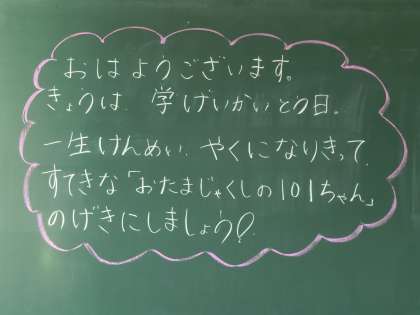 おはようございます。
きょうは、学げいかいとう日。
一生けんめい、やくになりきって、
すてきな「おたまじゃくしの101ちゃん」
のげきにしましょう!